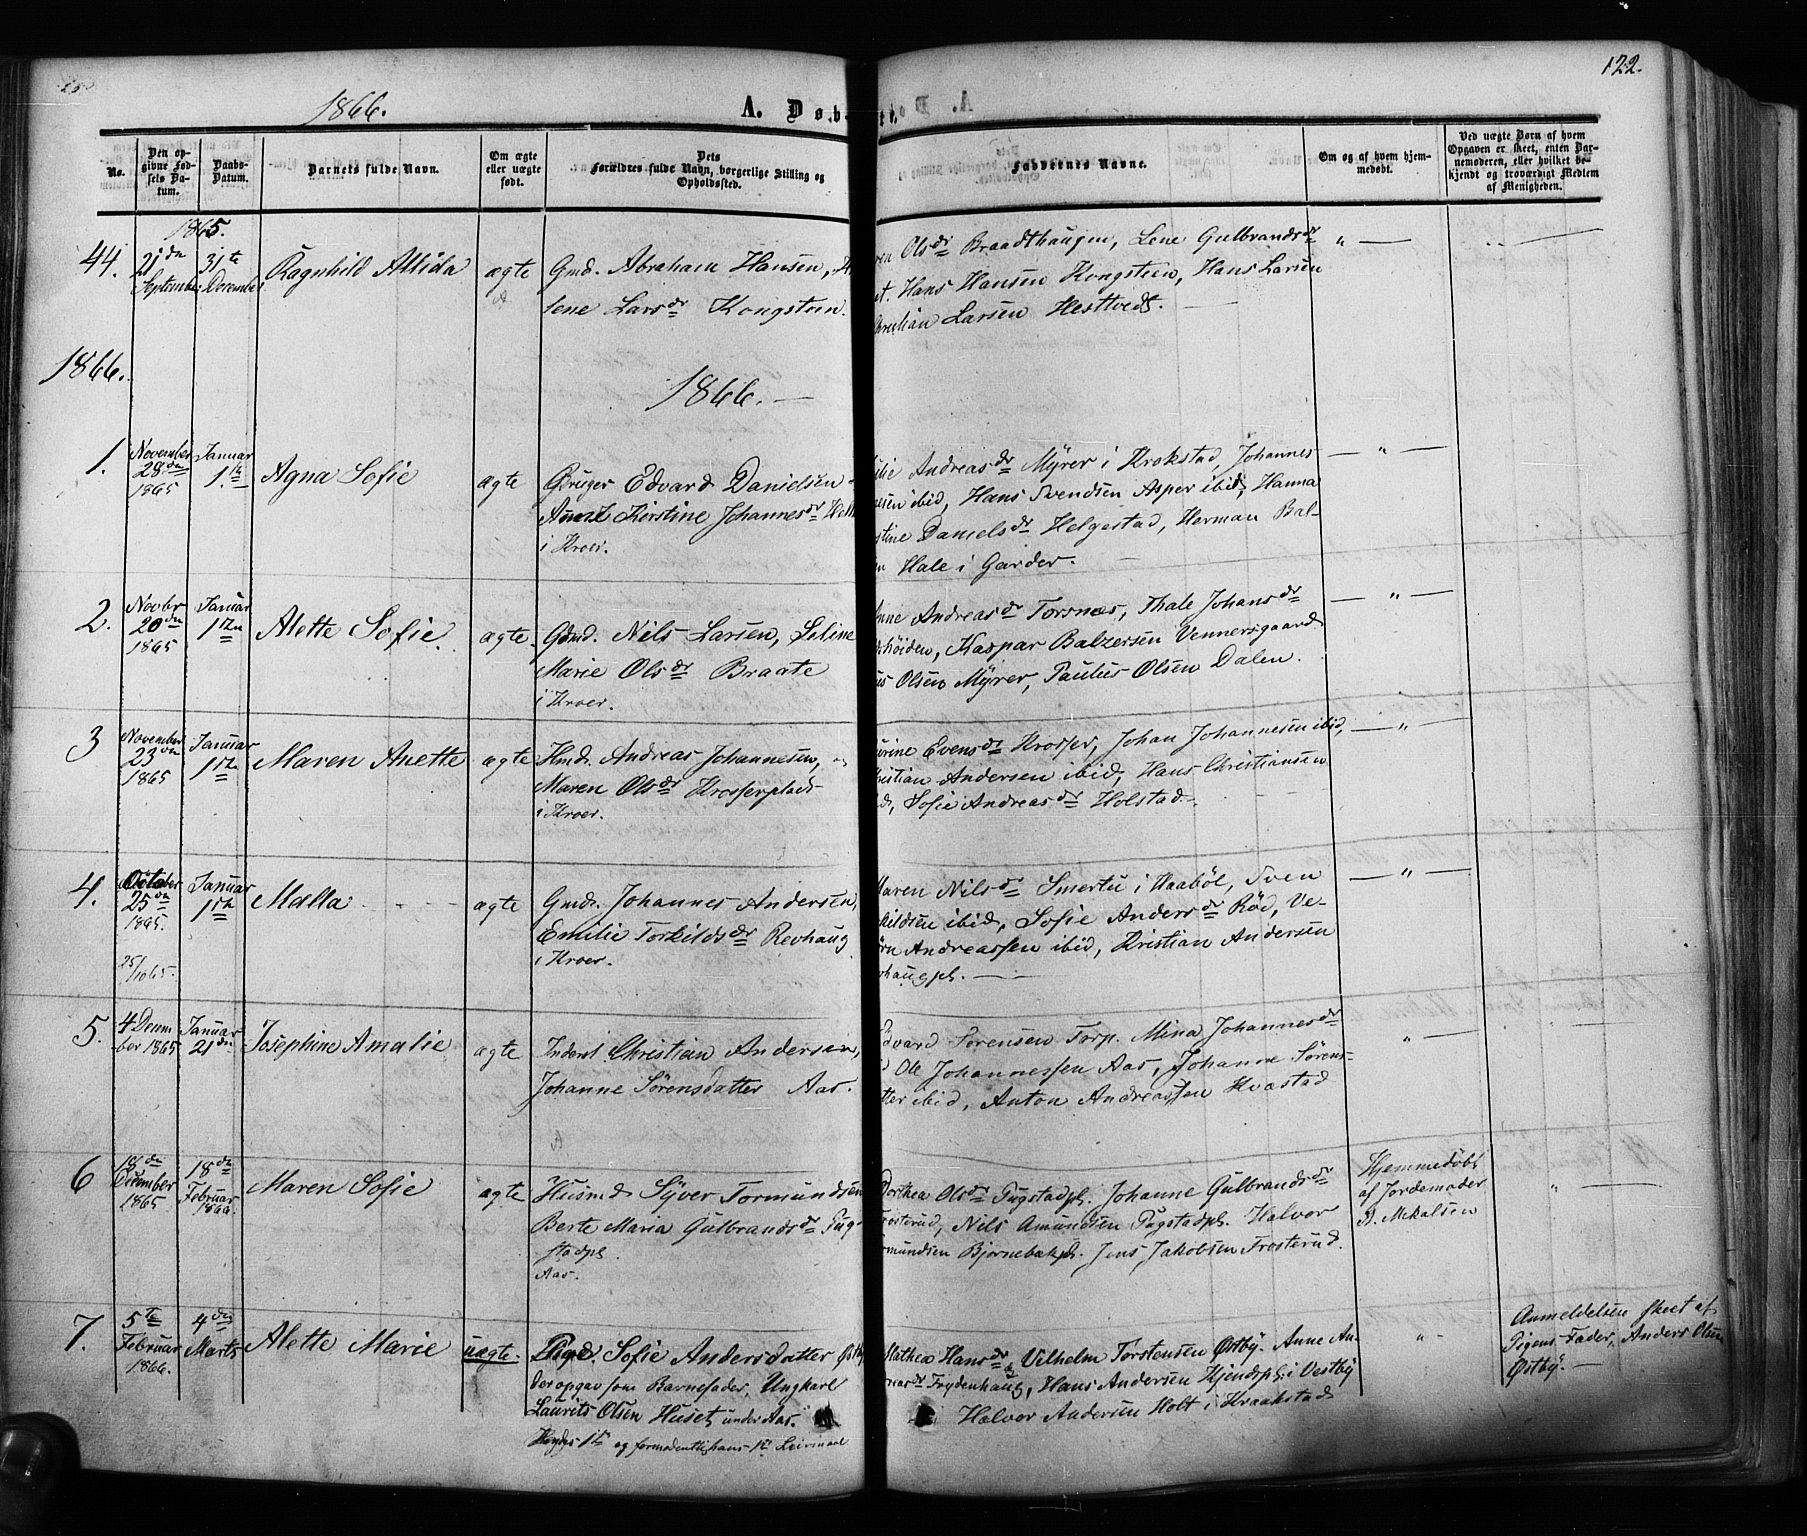 122.
1866.
A. Døb
No.
Den opgivne Fødsels Datum.
Daabs-Datum.
Barnets fulde Navn.
Om ægte eller uægte født.
Dets Forældres fulde Navn, borgerlige Stilling og Opholdssted.
Faddernes Navne.
Om og af hvem hjemmedøbt.
Ved uægte Børn af hvem Opgaven er skeet, enten Barnemoderen, eller hvilket bekjendt og troværdigt Medlem af Menigheden.
1865.
44. 21de September 31te December Ragnhild Allida ægte Gmd. Abraham Hansen,
lene Larsdr Kongsteen.
Olsdr Braadthaugen, Lene Gulbrandsdr
Hans Hansen Kongsteen, Hans Larsen
Larsen Hesttvedt. " —
1866.
1866. —
1. November 28de 1865 Januar 1te Agna Sofie ægte Bruger Edvard Danielsen
Kirstine Johannesdr
i Kroer.
Andreasdr Myrer i Krokstad, Johannes
ibid, Hans Svendsen Asper ibid, Hanna
Danielsdr Helgestad, Herman Bal-
Hale i Garder. — " —
2. Novbr 20de 1865 Januar 1te Alette Sofie ægte Gmd. Nils Larsen, Seline
Marie Olsdr Braate
i Kroer.
Anne Andreasdr Torsnæs, Thale Johansdr
høiden, Kaspar Balzersen Vennersgaard
Olsen Myrer, Paulus Olsen Dalen. — " —
3 November 23de 1865 Januar 1te Maren Anette ægte Hmd. Andreas Johannesen,
Maren Olsdr Krosserplads
i Kroer.
Evensdr Krosser, Johan Johannesen ibid,
Andersen ibid, Hans Christiansen
Sofie Andreasdr Holstad. — " —
4. October 25de 1865. Januar 1te Malla ægte Gmd. Johannes Andersen,
25/10 65.
Emilie Torkildsdr Revhaug
i Kroer.
Maren Nilsdr Smertu i Haabøl, Sven
ibid, Sofie Andersdr Rød, Ve-
Andreassen ibid, Kristian Andersen
— " —
5. 4 December 1865 Januar 21de Josephine Amalie ægte Inderst Christian Andersen,
Johanne Sørensdatter Aas.
Edvard Sørensen Torp. Mina Johannesdr
Ole Johannessen Aas, Johanne Sørens-
ibid, Anton Andreassen Kvastad " —
6 18de December 1865 18de Februar 1866. Maren Sofie ægte Husmd Syver Tormundsen
Berte Maria Gulbrandsdr Pug-
stadpl.
Aas.
Dorthea Olsdr Pugstadpl. Johanne Gulbrandsdr
Frosterud, Nils Amundsen Pugstadpl. Halvor
Tormundsen Bjørnebækpl. Jens Jakobsen Frosterud.
Hjemmedøbt
af Jordemoder
B. Mikalsen
"
7. 5te Februar 1866. 4de Marts Alette Marie uægte. Pige. Sofie Andersdatter Østby
der opgav som Barnefader, Ungkarl
Laurits Olsen Huset under Aas.
Hendes 1te og formodentlig hans 1te Leiermaal
Mathea Hansdr, Vilhelm Torstensen Østby. Anne An-
Frydenhaug, Hans Andersen Hjendspl. i Vestby
Halvor Andersen Holt i Kraakstad
" —
Anmeldelsen skeet af
Pigens Fader, Anders Olsen
Østby. —